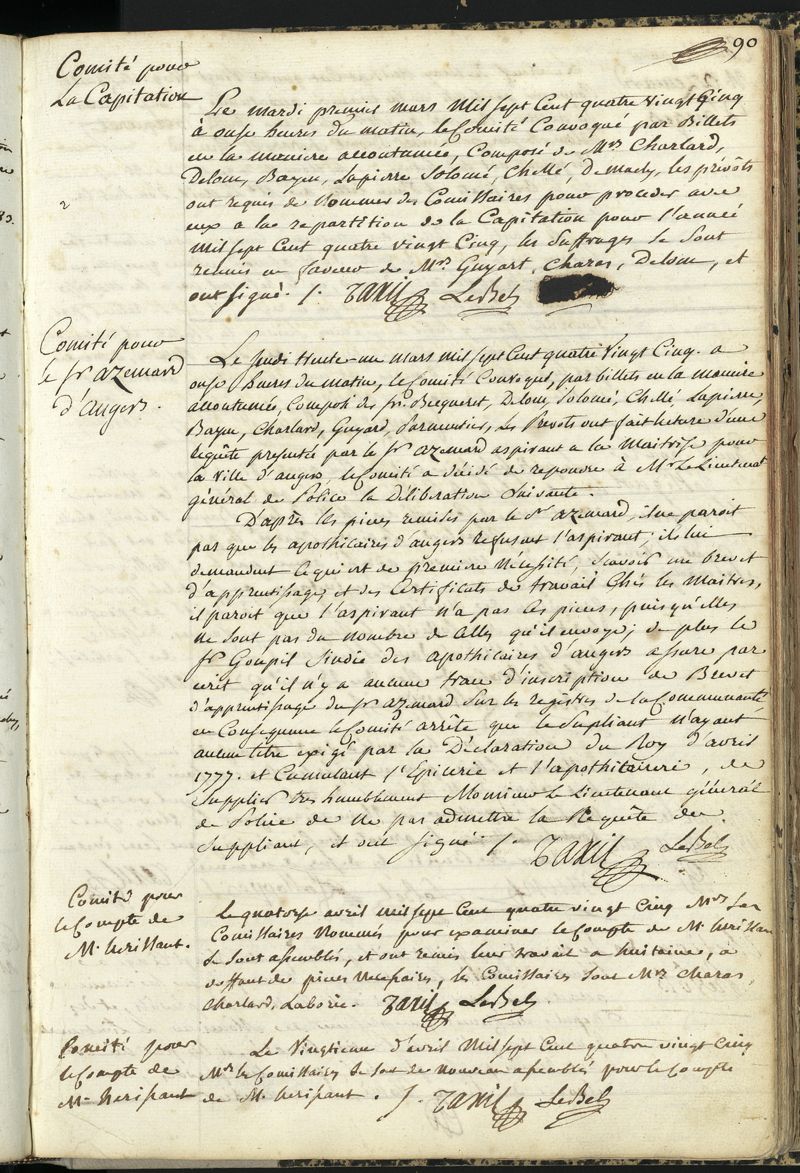 90
Comité pour
La Capitation
Le mardi premier mars Mil sept Cent quatre vingt Cinq
à onse heures du matin, le Comité Convoqué par Billets
en la maniere accoutumée, Composé de Mrs Charlard,
Delom, Bayen, Lapierre Solomé, Chellé, Demachy, les prévôts
ont requis de Nommer des Comissaires pour proceder avec
eux a la repartition de la Capitation pour l'année
Mil sept Cent quatre vingt Cinq, les Suffrages se sont
reunis en faveur de Mrs Guyart, Charas, Delom, et
ont signé. /. Taxil LeBel
2
Comité pour
le Sr azemard
d'angers.
Le Jeudi trente-un mars mil sept Cent quatre Vingt Cinq. a
onse heures du matin, le Comité Convoqué, par billets en la maniere
accoutumée, Composé des Srs Becqueret, Delom, Solomé, Chellé Lapierre,
Bayen, Charlard, Guyard, Parmentier, Les Prevots ont fait lecture d'une
Requête presentée par le Sr azemard aspirant a la Maitrise pour
la Ville d'angers, le Comité a décidé de repondre à Mr Le Lieutenat
général de Police la Déliberation Suivante.
D'après les pieces remises par le Sr azemard, il ne paroit
pas que les apothicaires d'angers refusent l'aspirant; ils lui
demandent ce qui est de premiere Nécessité, scavoir un brevet
d'apprentissage, et des Certificats de travail Chés les Maitres,
il paroit que l'aspirant n'a pas ces pieces, puisqu'elles
ne sont pas du nombre de Celles qu'il envoye; de plus le
Sr Goupil Sindic des apothicaires d'angers assure par
ecrit qu'il n'y a aucune trace d'inscription de Brevet
d'apprentissage du Sr azemard sur les registres de la Communauté
en Consequence le Comité arrête que le Supliant n'ayant
aucun titre exigé par la Déclaration du Roy d'avril
1777. et Cumulant l'Epicerie et l'apothicairerie, de
Supplier très humblement Monsieur le Lieutenant général
de Police de ne pas admettre la Requête du
Suppliant, et ont signé. /. Taxil LeBel
Comité pour
le Compte de
Mr. herissant.
Le quatorse avril mil sept Cent quatre vingt Cinq Mrs Les
Comissaires Nommés pour examiner le Compte de M. herissan
se sont assemblés, et ont remis leur travail a huitaine, a
deffaut de pieces necessaires, les Comissaires sont Mrs Charas,
Charlard, Laborie. Taxil LeBel
Comité pour
le Compte de
Mr herissant
Le Vingtieme d'avril Mil sept Cent quatre vingt Cinq
Mrs les Comissaires se sont de nouveau assemblés pour le Compte
de M. herissant. /. Taxil LeBel